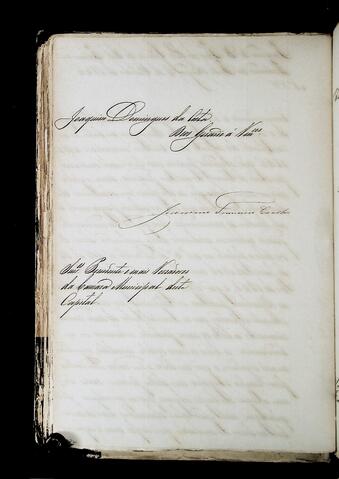 Joaquim Domingues da Costa
Deus Guarde á V.ces
Francisco
Snr.es Presidente e mais Vereadores
da Camara Municipal desta
Capital